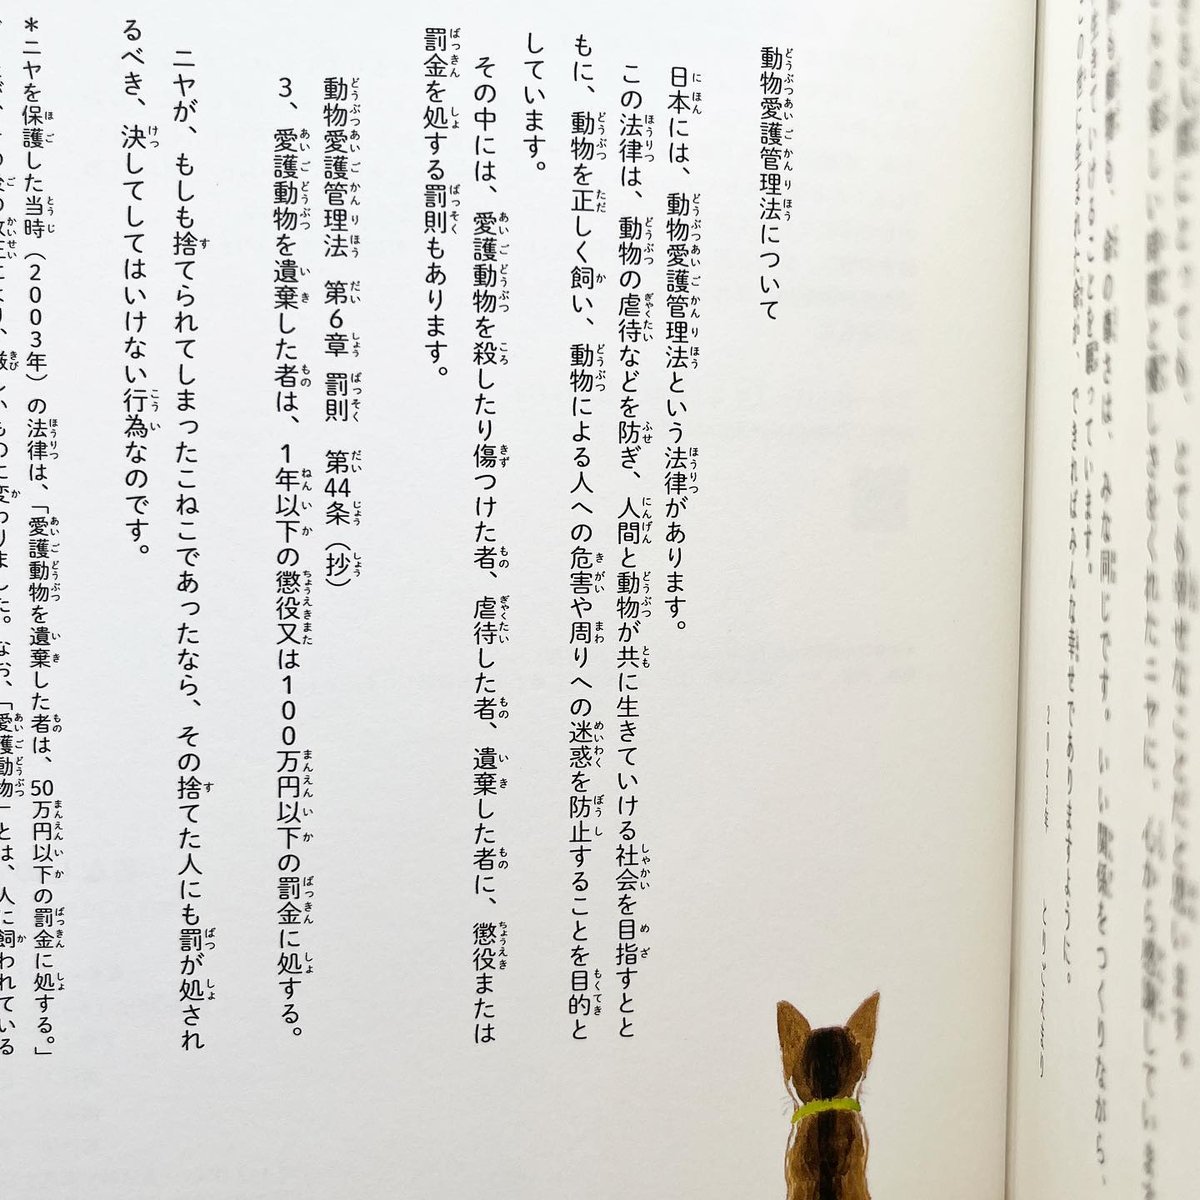 とても幸せなことだと思います。
しさをくれたニャに、心から感謝していま
命の重さは、みな同じです。いい関係をつくりながら、
っています。
できればみんな幸せでありますように。
動物愛護管理法について
日本には、動物愛護管理法という法律があります。
この法律は、動物の虐待などを防ぎ、人間と動物が共に生きていける社会を目指すとと
もに、動物を正しく飼い、動物による人への危害や周りへの迷惑を防止することを目的と
しています。
その中には、愛護動物を殺したり傷つけた者、虐待した者、遺棄した者に、懲役または
罰金を処する罰則もあります。
動物愛護管理法 第6章 罰則 第44条(抄)
3、愛護動物を遺棄した者は、1年以下の懲役又は100万円以下の罰金に処する。
ニヤが、もしも捨てられてしまったこねこであったなら、その捨てた人にも罰が処され
るべき、決してしてはいけない行為なのです。
*ニヤを保護した当時(2003年)の法律は、「愛護動物を遺棄した者は、50万円以下の罰金に処する。」
により、厳しいものに変わりました。なお、「愛護動物」とは、人に飼われている